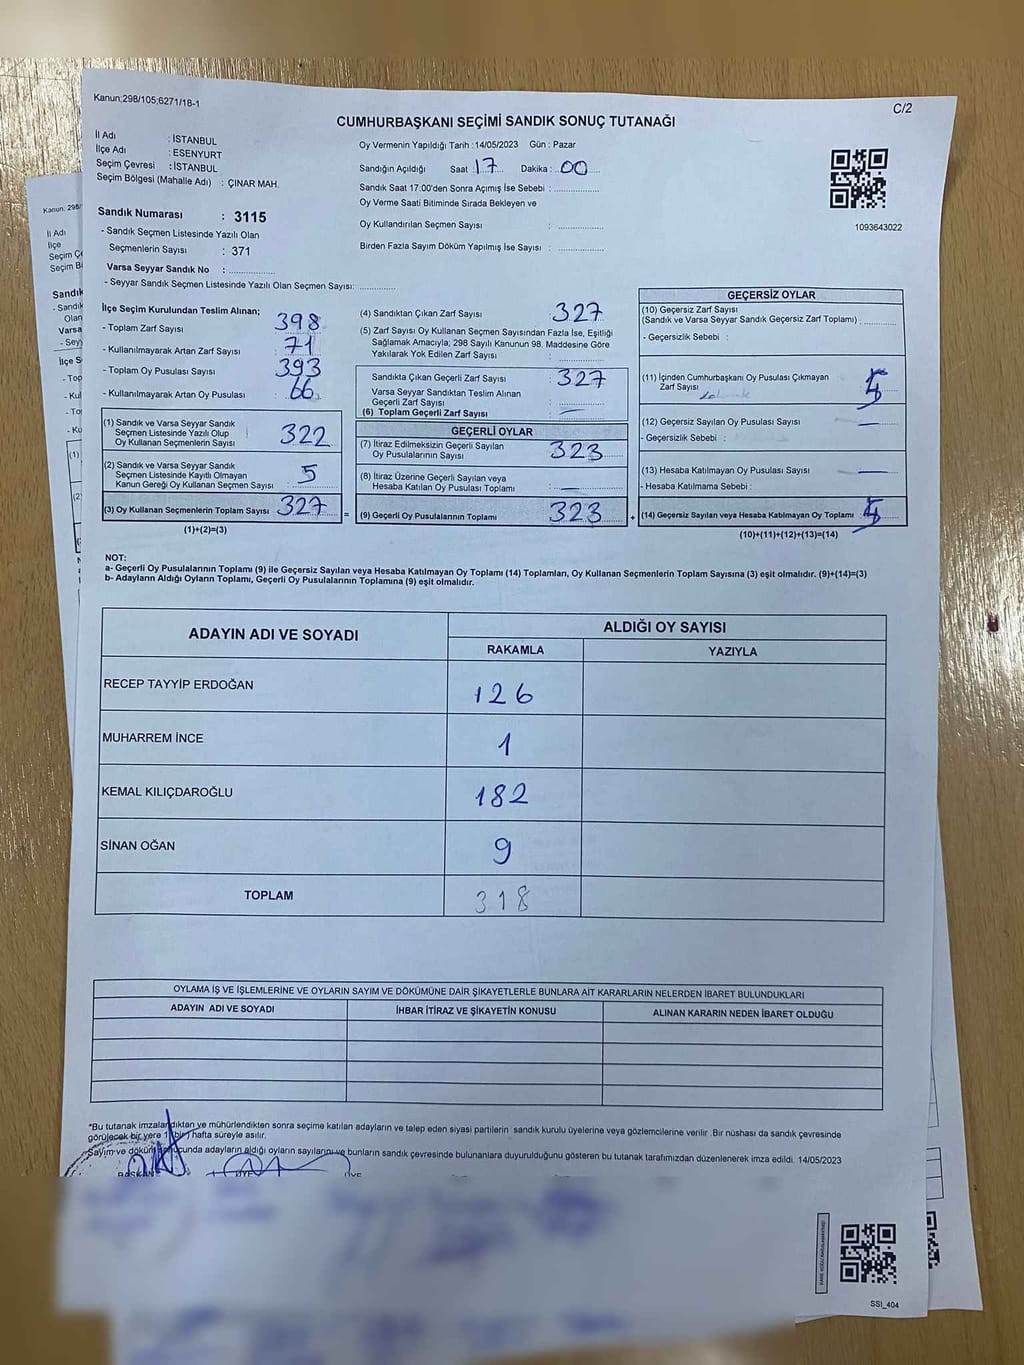 Kanun;298/105;6271/18-1
C/2
CUMHURBAŞKANI SEÇİMİ SANDIK SONUÇ TUTANAĞI
İl Adı : İSTANBUL
İlçe Adı : ESENYURT
Seçim Çevresi : İSTANBUL
Seçim Bölgesi (Mahalle Adı) : ÇINAR MAH.
Sandık Numarası : 3115
- Sandık Seçmen Listesinde Yazılı Olan
Seçmenlerin Sayısı : 371
Varsa Seyyar Sandık No :
- Seyyar Sandık Seçmen Listesinde Yazılı Olan Seçmen Sayısı:
Oy Vermenin Yapıldığı Tarih : 14/05/2023 Gün : Pazar
Sandığın Açıldığı Saat : 17 Dakika : 00
Sandık Saat 17:00'den Sonra Açımış İse Sebebi :
Oy Verme Saati Bitiminde Sırada Bekleyen ve
Oy Kullandırılan Seçmen Sayısı :
Birden Fazla Sayım Döküm Yapılmış İse Sayısı :
1093643022
İlçe Seçim Kurulundan Teslim Alınan;
- Toplam Zarf Sayısı 398
- Kullanılmayarak Artan Zarf Sayısı 71
- Toplam Oy Pusulası Sayısı 393
- Kullanılmayarak Artan Oy Pusulası 66
(1) Sandık ve Varsa Seyyar Sandık
Seçmen Listesinde Yazılı Olup
Oy Kullanan Seçmenlerin Sayısı 322
(2) Sandık ve Varsa Seyyar Sandık
Seçmen Listesinde Kayıtlı Olmayan
Kanun Gereği Oy Kullanan Seçmen Sayısı 5
(3) Oy Kullanan Seçmenlerin Toplam Sayısı 327 =
(1)+(2)=(3)
(4) Sandıktan Çıkan Zarf Sayısı 327
(5) Zarf Sayısı Oy Kullanan Seçmen Sayısından Fazla İse, Eşitliği
Sağlamak Amacıyla; 298 Sayılı Kanunun 98. Maddesine Göre
Yakılarak Yok Edilen Zarf Sayısı :
Sandıkta Çıkan Geçerli Zarf Sayısı : 327
Varsa Seyyar Sandıktan Teslim Alınan
Geçerli Zarf Sayısı :
(6) Toplam Geçerli Zarf Sayısı —
GEÇERLİ OYLAR
(7) İtiraz Edilmeksizin Geçerli Sayılan
Oy Pusulalarının Sayısı 323
(8) İtiraz Üzerine Geçerli Sayılan veya
Hesaba Katılan Oy Pusulası Toplamı —
(9) Geçerli Oy Pusulalarının Toplamı 323 +
GEÇERSİZ OYLAR
(10) Geçersiz Zarf Sayısı
(Sandık ve Varsa Seyyar Sandık Geçersiz Zarf Toplamı) :
- Geçersizlik Sebebi :
(11) İçinden Cumhurbaşkanı Oy Pusulası Çıkmayan
Zarf Sayısı
(12) Geçersiz Sayılan Oy Pusulası Sayısı —
- Geçersizlik Sebebi :
(13) Hesaba Katılmayan Oy Pusulası Sayısı —
- Hesaba Katılmama Sebebi :
(14) Geçersiz Sayılan veya Hesaba Katılmayan Oy Toplamı :
(10)+(11)+(12)+(13)=(14)
NOT:
a- Geçerli Oy Pusulalarının Toplamı (9) ile Geçersiz Sayılan veya Hesaba Katılmayan Oy Toplamı (14) Toplamları, Oy Kullanan Seçmenlerin Toplam Sayısına (3) eşit olmalıdır. (9)+(14)=(3)
b- Adayların Aldığı Oyların Toplamı, Geçerli Oy Pusulalarının Toplamına (9) eşit olmalıdır.
ADAYIN ADI VE SOYADI ALDIĞI OY SAYISI
RAKAMLA YAZIYLA
RECEP TAYYİP ERDOĞAN 126
MUHARREM İNCE 1
KEMAL KILIÇDAROĞLU 182
SİNAN OĞAN 9
TOPLAM 318
OYLAMA İŞ VE İŞLEMLERİNE VE OYLARIN SAYIM VE DÖKÜMÜNE DAİR ŞİKAYETLERLE BUNLARA AİT KARARLARIN NELERDEN İBARET BULUNDUKLARI
ADAYIN ADI VE SOYADI İHBAR İTİRAZ VE ŞİKAYETİN KONUSU ALINAN KARARIN NEDEN İBARET OLDUĞU
*Bu tutanak imzalandıktan ve mühürlendikten sonra seçime katılan adayların ve talep eden siyasi partilerin sandık kurulu üyelerine veya gözlemcilerine verilir .Bir nüshası da sandık çevresinde
görülecek bir yere 1 (bir) hafta süreyle asılır.
Sayım ve döküm sonucunda adayların aldığı oyların sayılarını ve bunların sandık çevresinde bulunanlara duyurulduğunu gösteren bu tutanak tarafımızdan düzenlenerek imza edildi. 14/05/2023
BAŞKAN ÜYE ÜYE
SSI_404